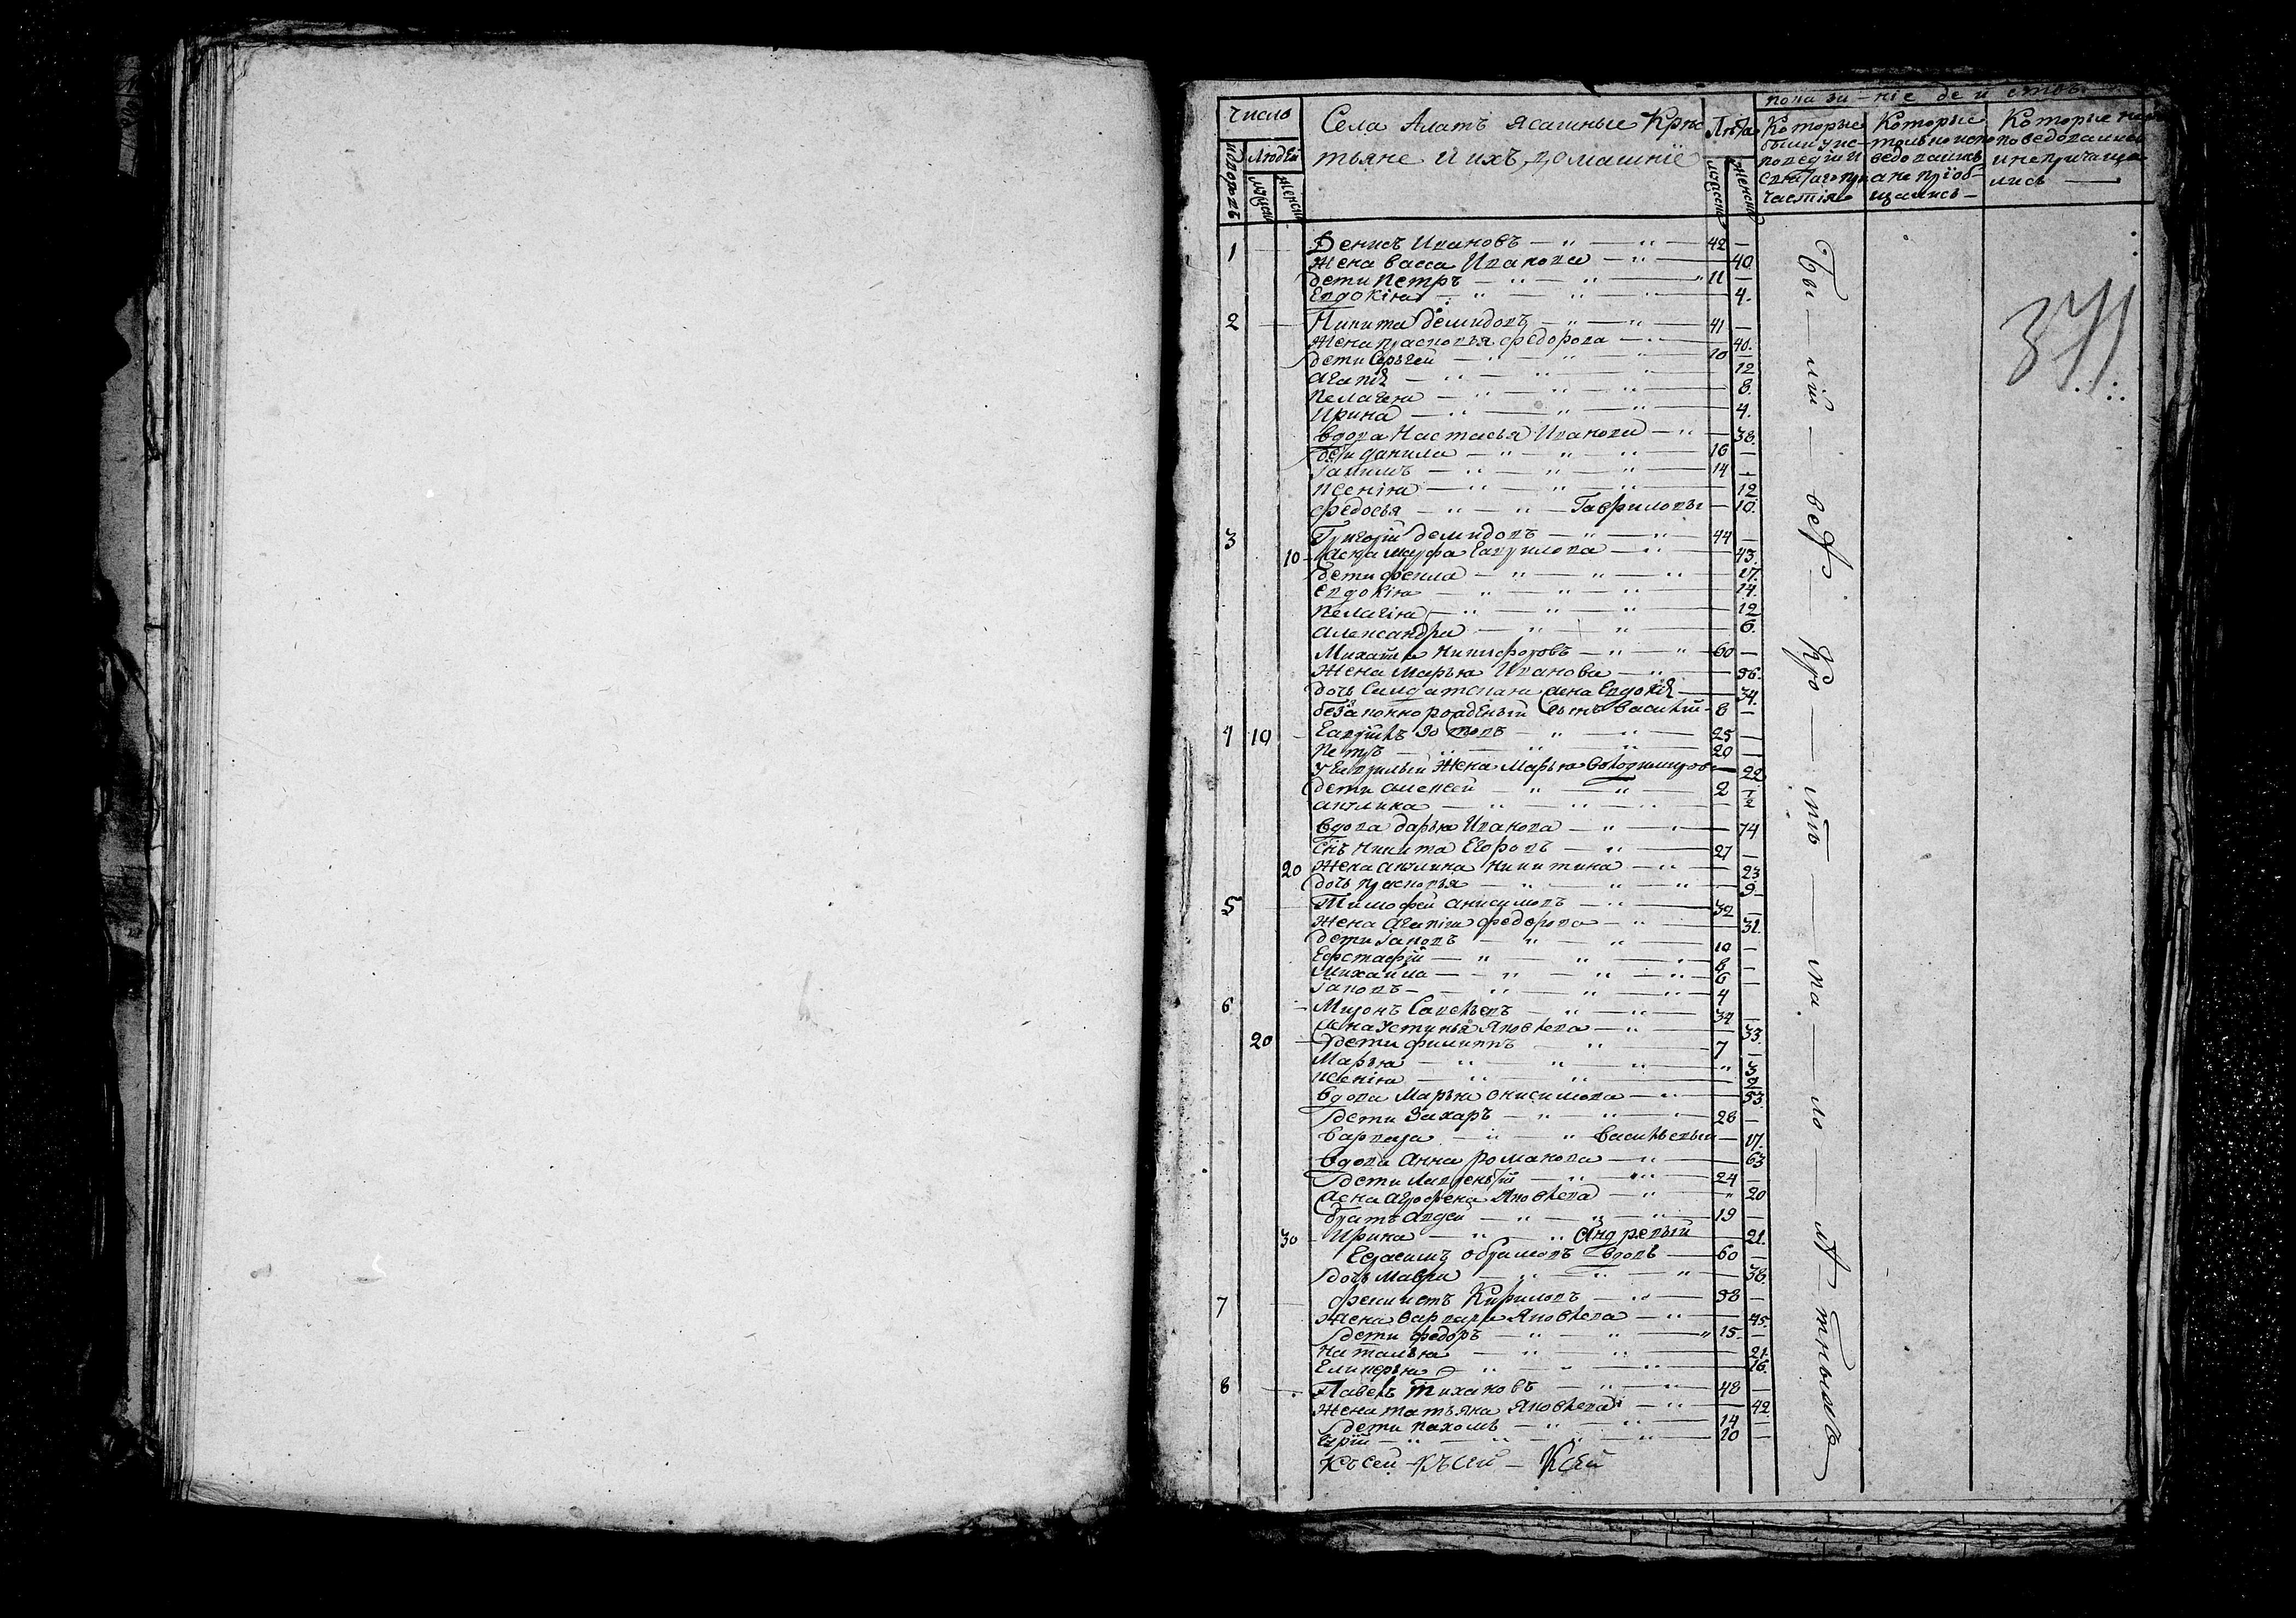 показаніе деиствъ
Число
дворовъ
Людей
мужеска
женска
Села Алатъ ясашные Крес
тьяне и ихъ домашніе
Лѣта
мужеска
женска
Которые были у исповеди и святаго причастія
Которые только исповедовались а не пріобщались
Которые не исповедовались и не причащались
371
1 Денисъ Ивановъ 42
Жена васса Иванова 40
дети Петръ 11
Евдокія 4
2 Никита демидовъ 41
Жена прасковья федорова 40
дети Сергей 10
агапія 12
Пелагея 8
Ирина 4
вдова Настасья Иванова 38
дети данила 16
14
Ксенія 12
федосья Гавриловы 10
3 Григорій демидовъ 44
10 жена марфа Гаврилова 43
дети фекла 17
Евдокія 14
Пелагія 12
александра 6
Михайла Никифоровъ 60
Жена Марья Иванова 56
дочь Салдатская жена Евдокія 34
беззаконнорожденный сынъ василий 8
4 10 Гаврилъ Зотовъ 25
Петръ 20
У Гаврилы Жена Марья володимирова 22
дети алексей 2
акулина 2
вдова дарья Иванова 74
Снъ Никита Егоровъ 27
20 Жена акулина Никитина 23
дочь прасковья 9
5 Тимофей анисимовъ 32
Жена агапія федорова 31
дети Іаковъ 10
Евстафій 8
Михайла 6
Іаковъ 4
6 Миронъ Савельевъ 34
жена Устинья Яковлева 33
20 дети филиппъ 7
Марья 3
Ксенія 2
вдова Марья онисимова 53
дети Захаръ 28
варвара васильевы 17
вдова анна романова 63
дети Лаврентій 24
жена агрофена Яковлева 20
братъ авдей 19
30 Ирина андревы 21
Герасимъ обрамовъ вдовъ 60
дочь мавра 38
7 феклистъ Кириловъ 58
жена варвара Яковлева 45
дети федоръ 15
Наталья 21
Гликерья 16
8 Павелъ Тихановъ 48
Жена татьяна Яковлева 42
дети пахомъ 14
10
Къ сей къ сей Ксей